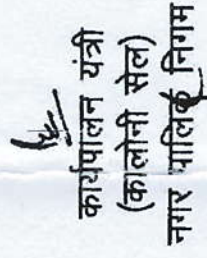 कार्यपालन यंत्री
(कालोनी सेल)
नगर पालिक निगम